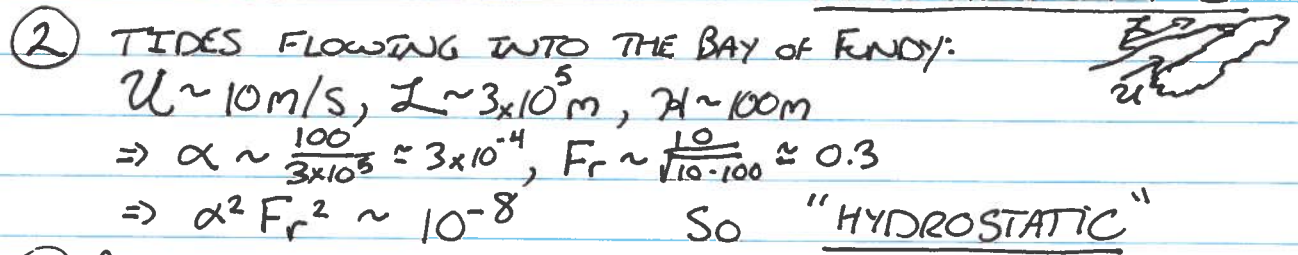 ② TIDES FLOWING INTO THE BAY OF FUNDY:
U ~ 10 m/s, L ~ 3×10⁵ m, H ~ 100 m
⇒ α ~ 100/3×10⁵ ≃ 3×10⁻⁴, Fr ~ 10/√10·100 ≃ 0.3
⇒ α² Fr² ~ 10⁻⁸ So "HYDROSTATIC"